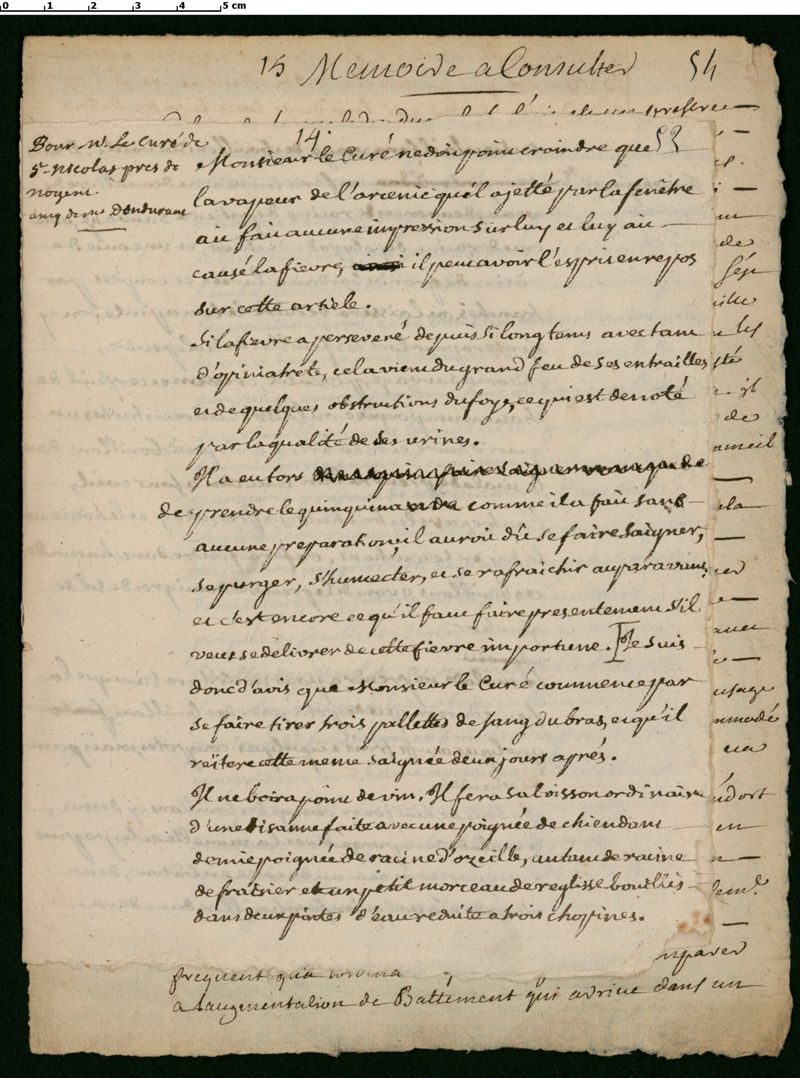 0 1 2 3 4 5 cm
15 Memoire a Consulter 54
14. 53
Pour mr. Le Curé de
St. nicolas pres de
nogent
amy de mr
Monsieur le Curé ne doit point craindre que
la vapeur de l'arcenic quil a jetté par la fenêtre
ait fait aucune impression sur luy et luy ait
causé la fievre, il peut avoir l'esprit en repos
sur cette article.
Si la fievre a perseveré depuis si long tems avec tant
d'opiniatreté, cela vient du grand feu de ses entrailles
et de quelques obstructions du foye, ce qui est denoté
par la qualité de ses urines.
Il a eu tors
de prendre le quinquina comme il a fait sans
aucune preparation, il auroit dû se faire saigner,
se purger, s'humecter, et se rafraichir auparavant,
et c'est encore ce qu'il faut faire presentement s'il
veut se délivrer de cette fievre importune. Je suis
donc d'avis que Monsieur le Curé commence par
se faire tirer trois pallettes de sang du bras, et qu'il
reïtere cette meme saignée deux jours aprés.
Il ne boira point de vin. Il fera sa boisson ordinaire
d'une tisanne faite avec une poignée de chiendans
demie poignée de racine d'ozeille, autant de racine
de fraisier et un petit morceau de reglisse bouillis
dans deux pintes d'eau reduite a trois chopines.
frequent
a laugmentation de Battement qui arrive dans un